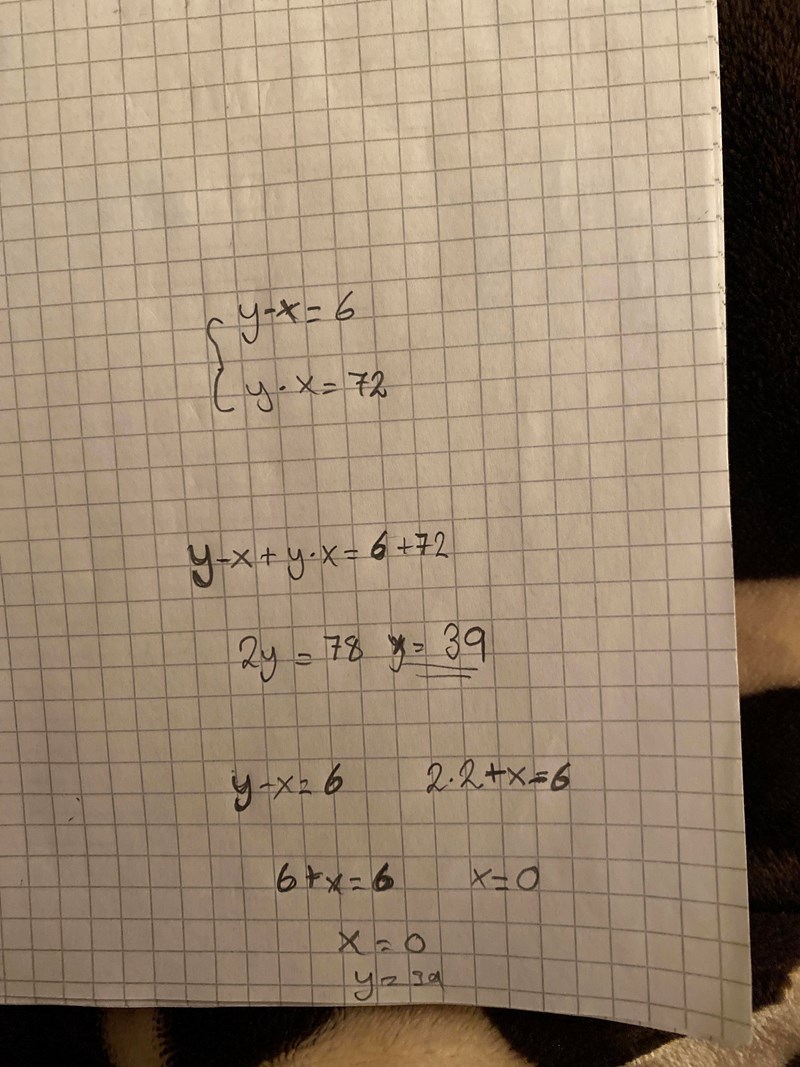 y-x=6
y·x=72
y-x+y·x=6+72
2y=78 y=39
y-x=6 2·2+x=6
6+x=6 x=0
x=0
y=39